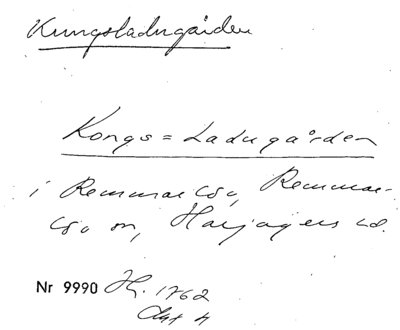 Kungsladugården
Kongs=Ladugården
i Remmarlöv, Remmar-
löv sn, Harjagers hd.
Nr 9990 Jb. 1762